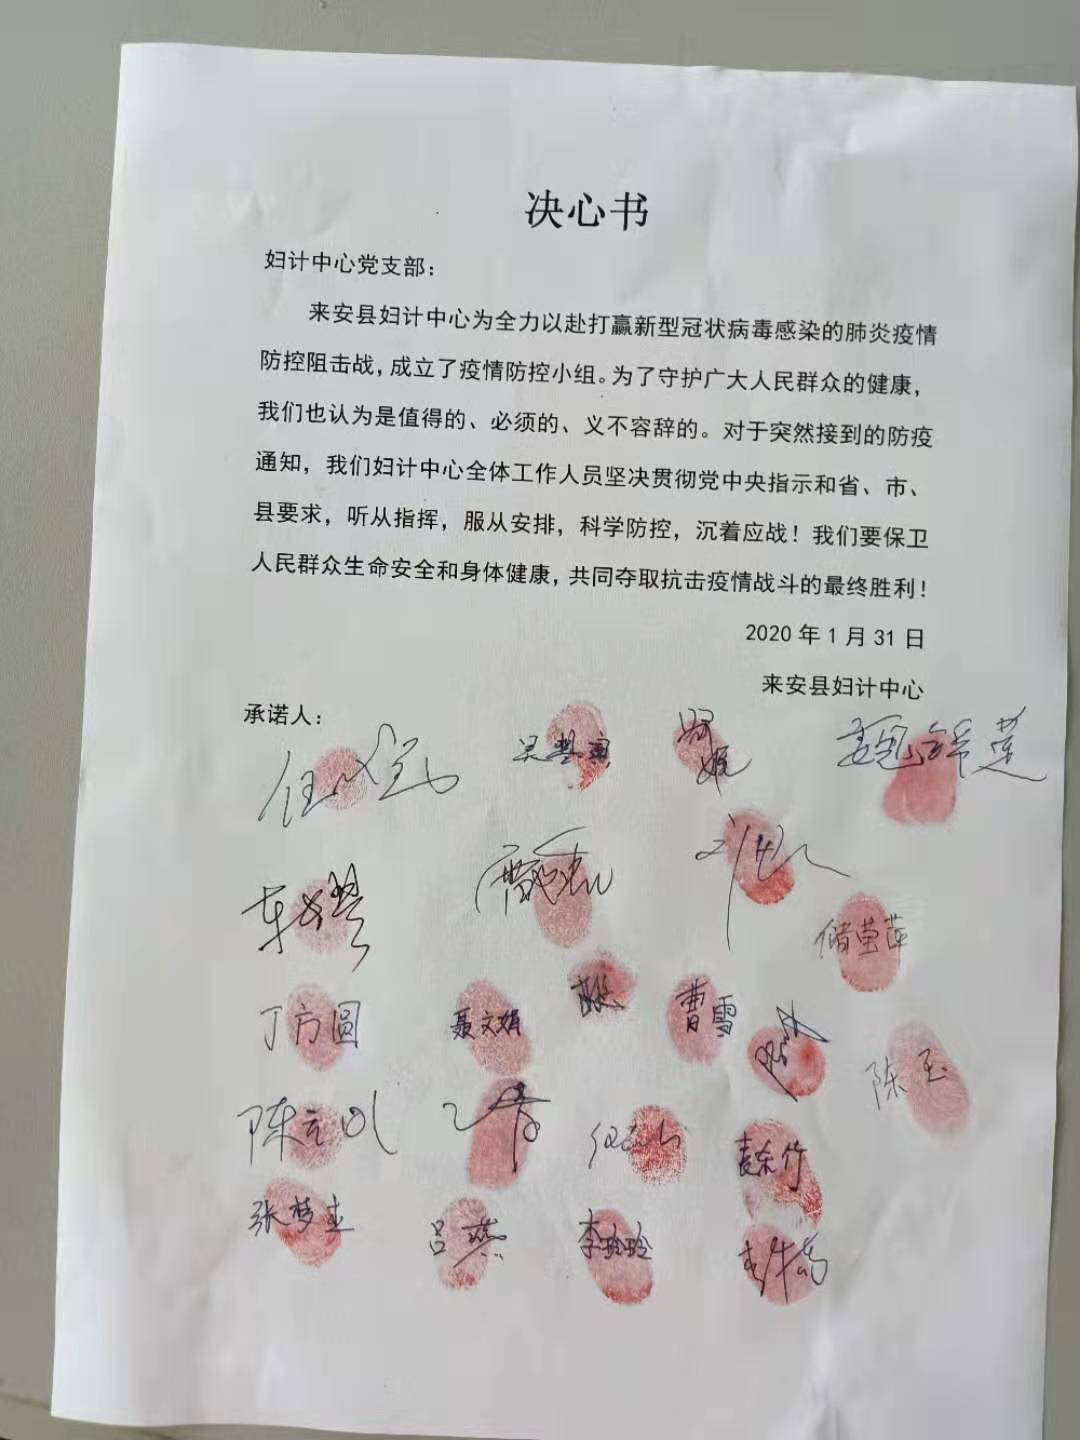 决心书
妇计中心党支部：
来安县妇计中心为全力以赴打赢新型冠状病毒感染的肺炎疫情
防控阻击战，成立了疫情防控小组。为了守护广大人民群众的健康，
我们也认为是值得的、必须的、义不容辞的。对于突然接到的防疫
通知，我们妇计中心全体工作人员坚决贯彻党中央指示和省、市、
县要求，听从指挥，服从安排，科学防控，沉着应战！我们要保卫
人民群众生命安全和身体健康，共同夺取抗击疫情战斗的最终胜利！
2020年1月31日
来安县妇计中心
承诺人：
储莹萍
丁方圆 聂文娟 曹雪
陈玉
吕燕 李玲玲